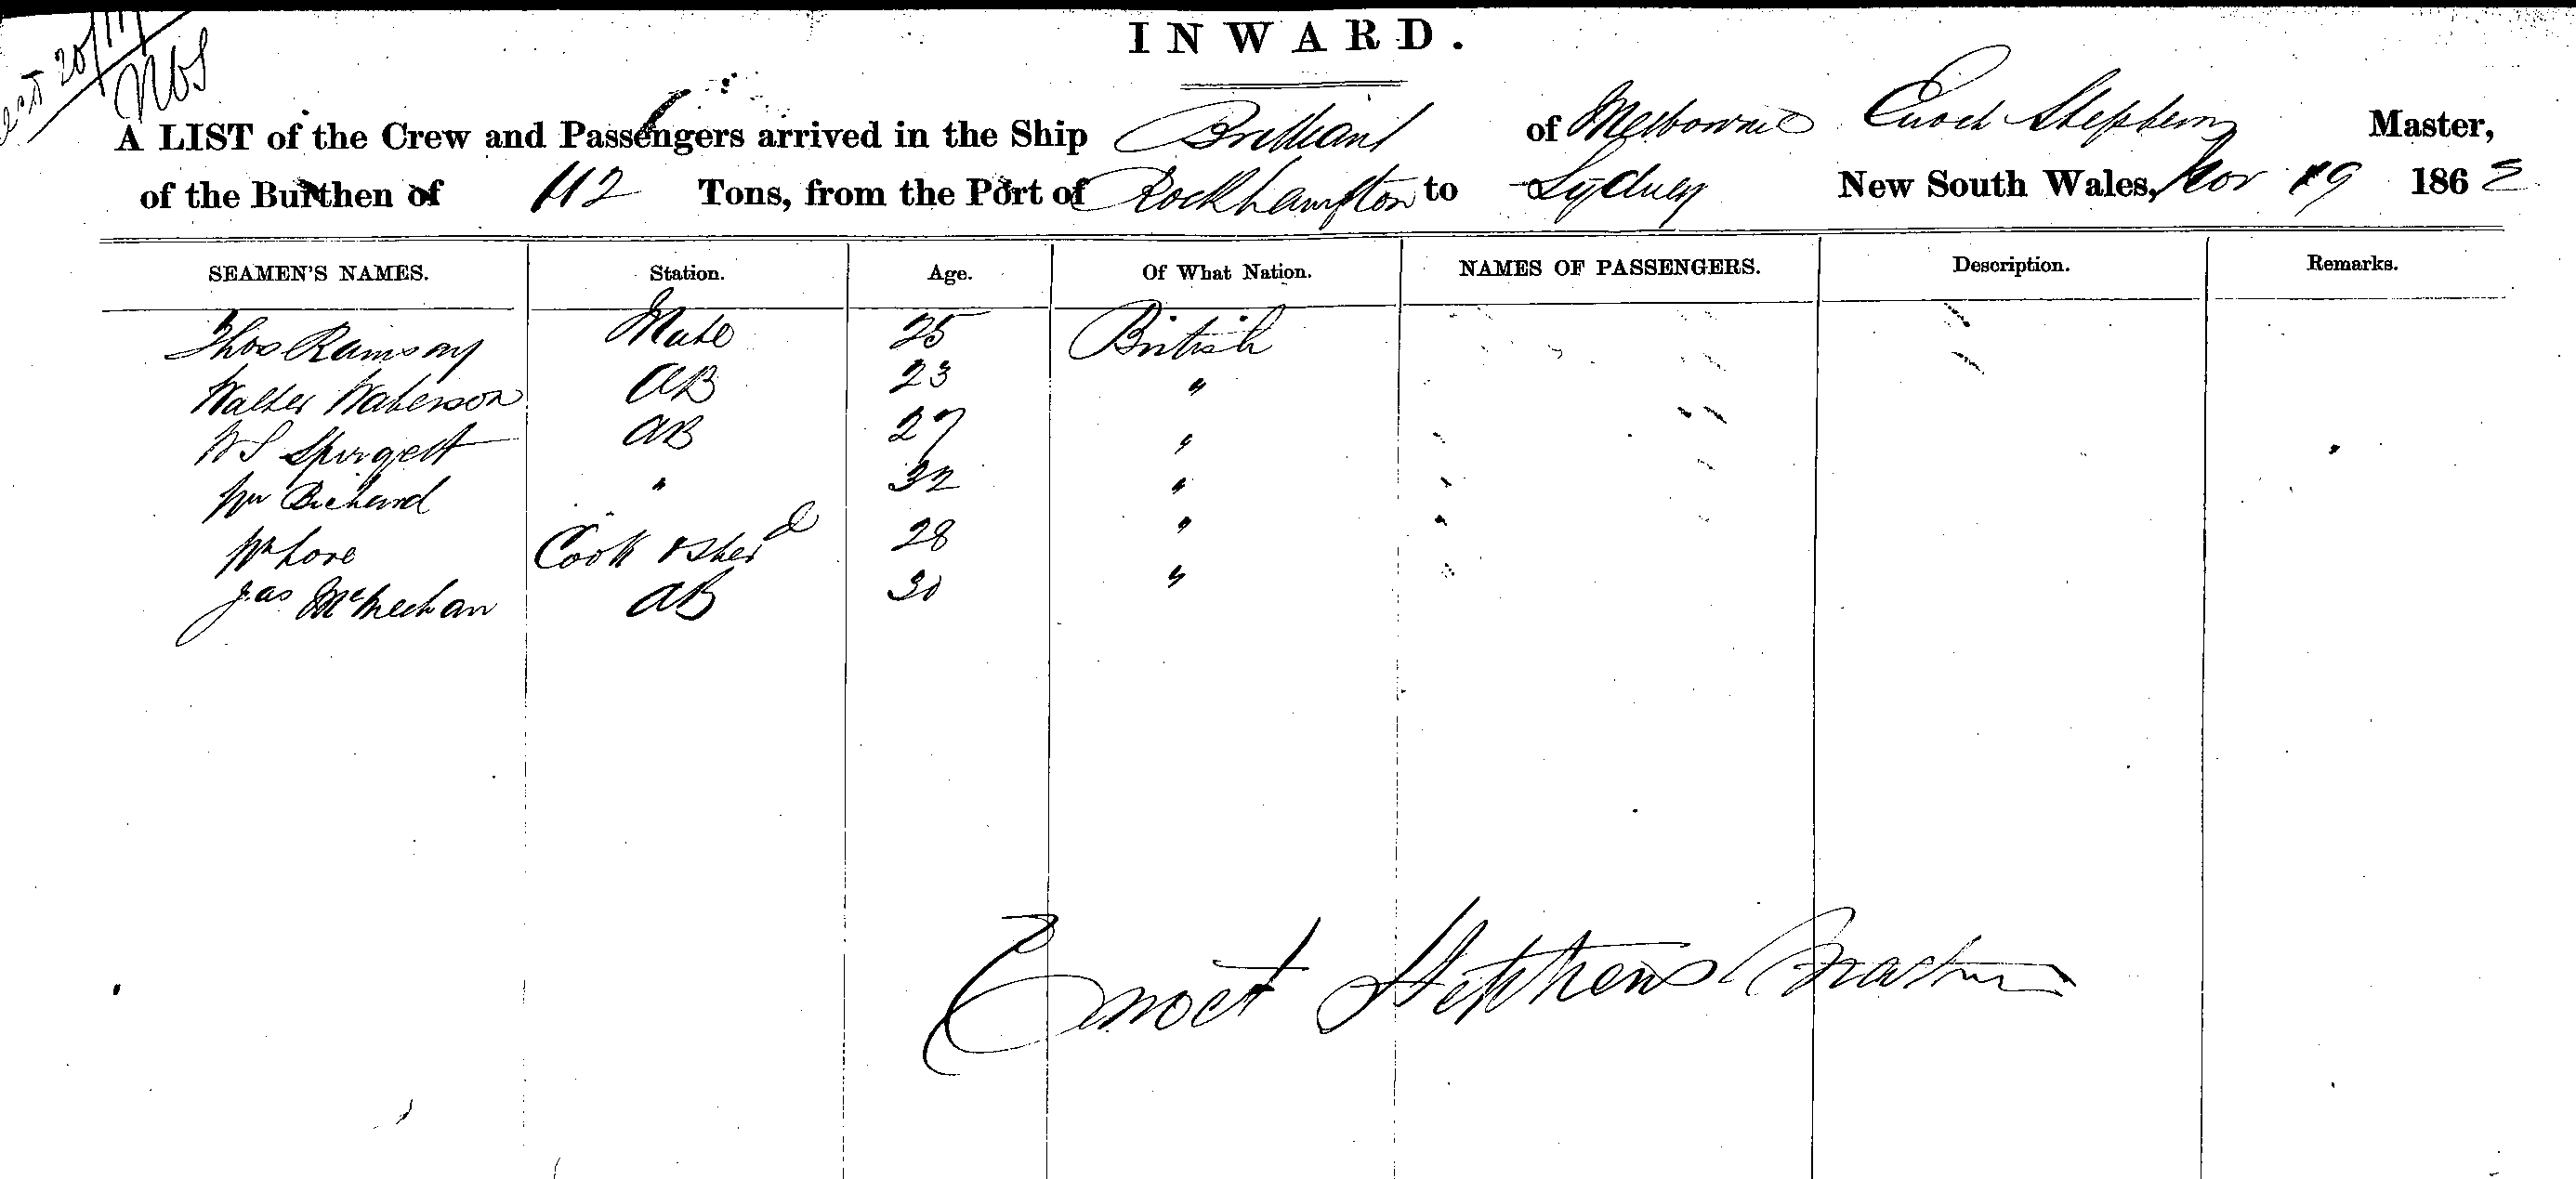 20/11
INWARD.
A LIST of the Crew and Passengers arrived in the Ship Brilliant of Melbourne Enoch Stephens Master,
of the Burthen of 112 Tons, from the Port of Rockhampton to Sydney New South Wales, Nov 19 1862
SEAMEN'S NAMES. Station. Age. Of What Nation. NAMES OF PASSENGERS. Description. Remarks.
Thos Ramsay Mate 25 British
Walter Waterson AB 23 "
W S Spurgett AB 27 "
Wm " 32 "
Wm Love Cook & Ste d 28 "
Jas McMeekan AB 30 "
Enoch Stephens Master